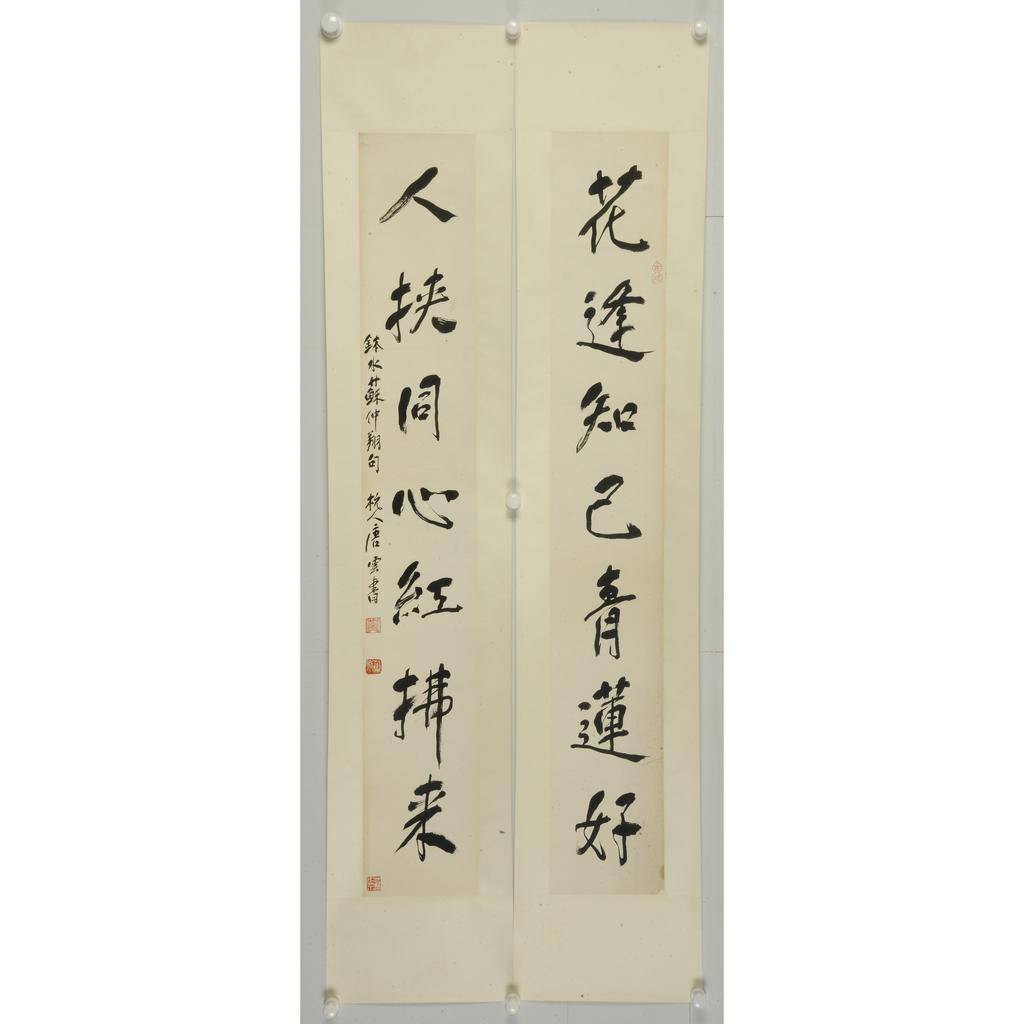 花逢知己青蓮好
人挟同心紅拂来
鉢水蘇仲翔句 杭人唐雲書